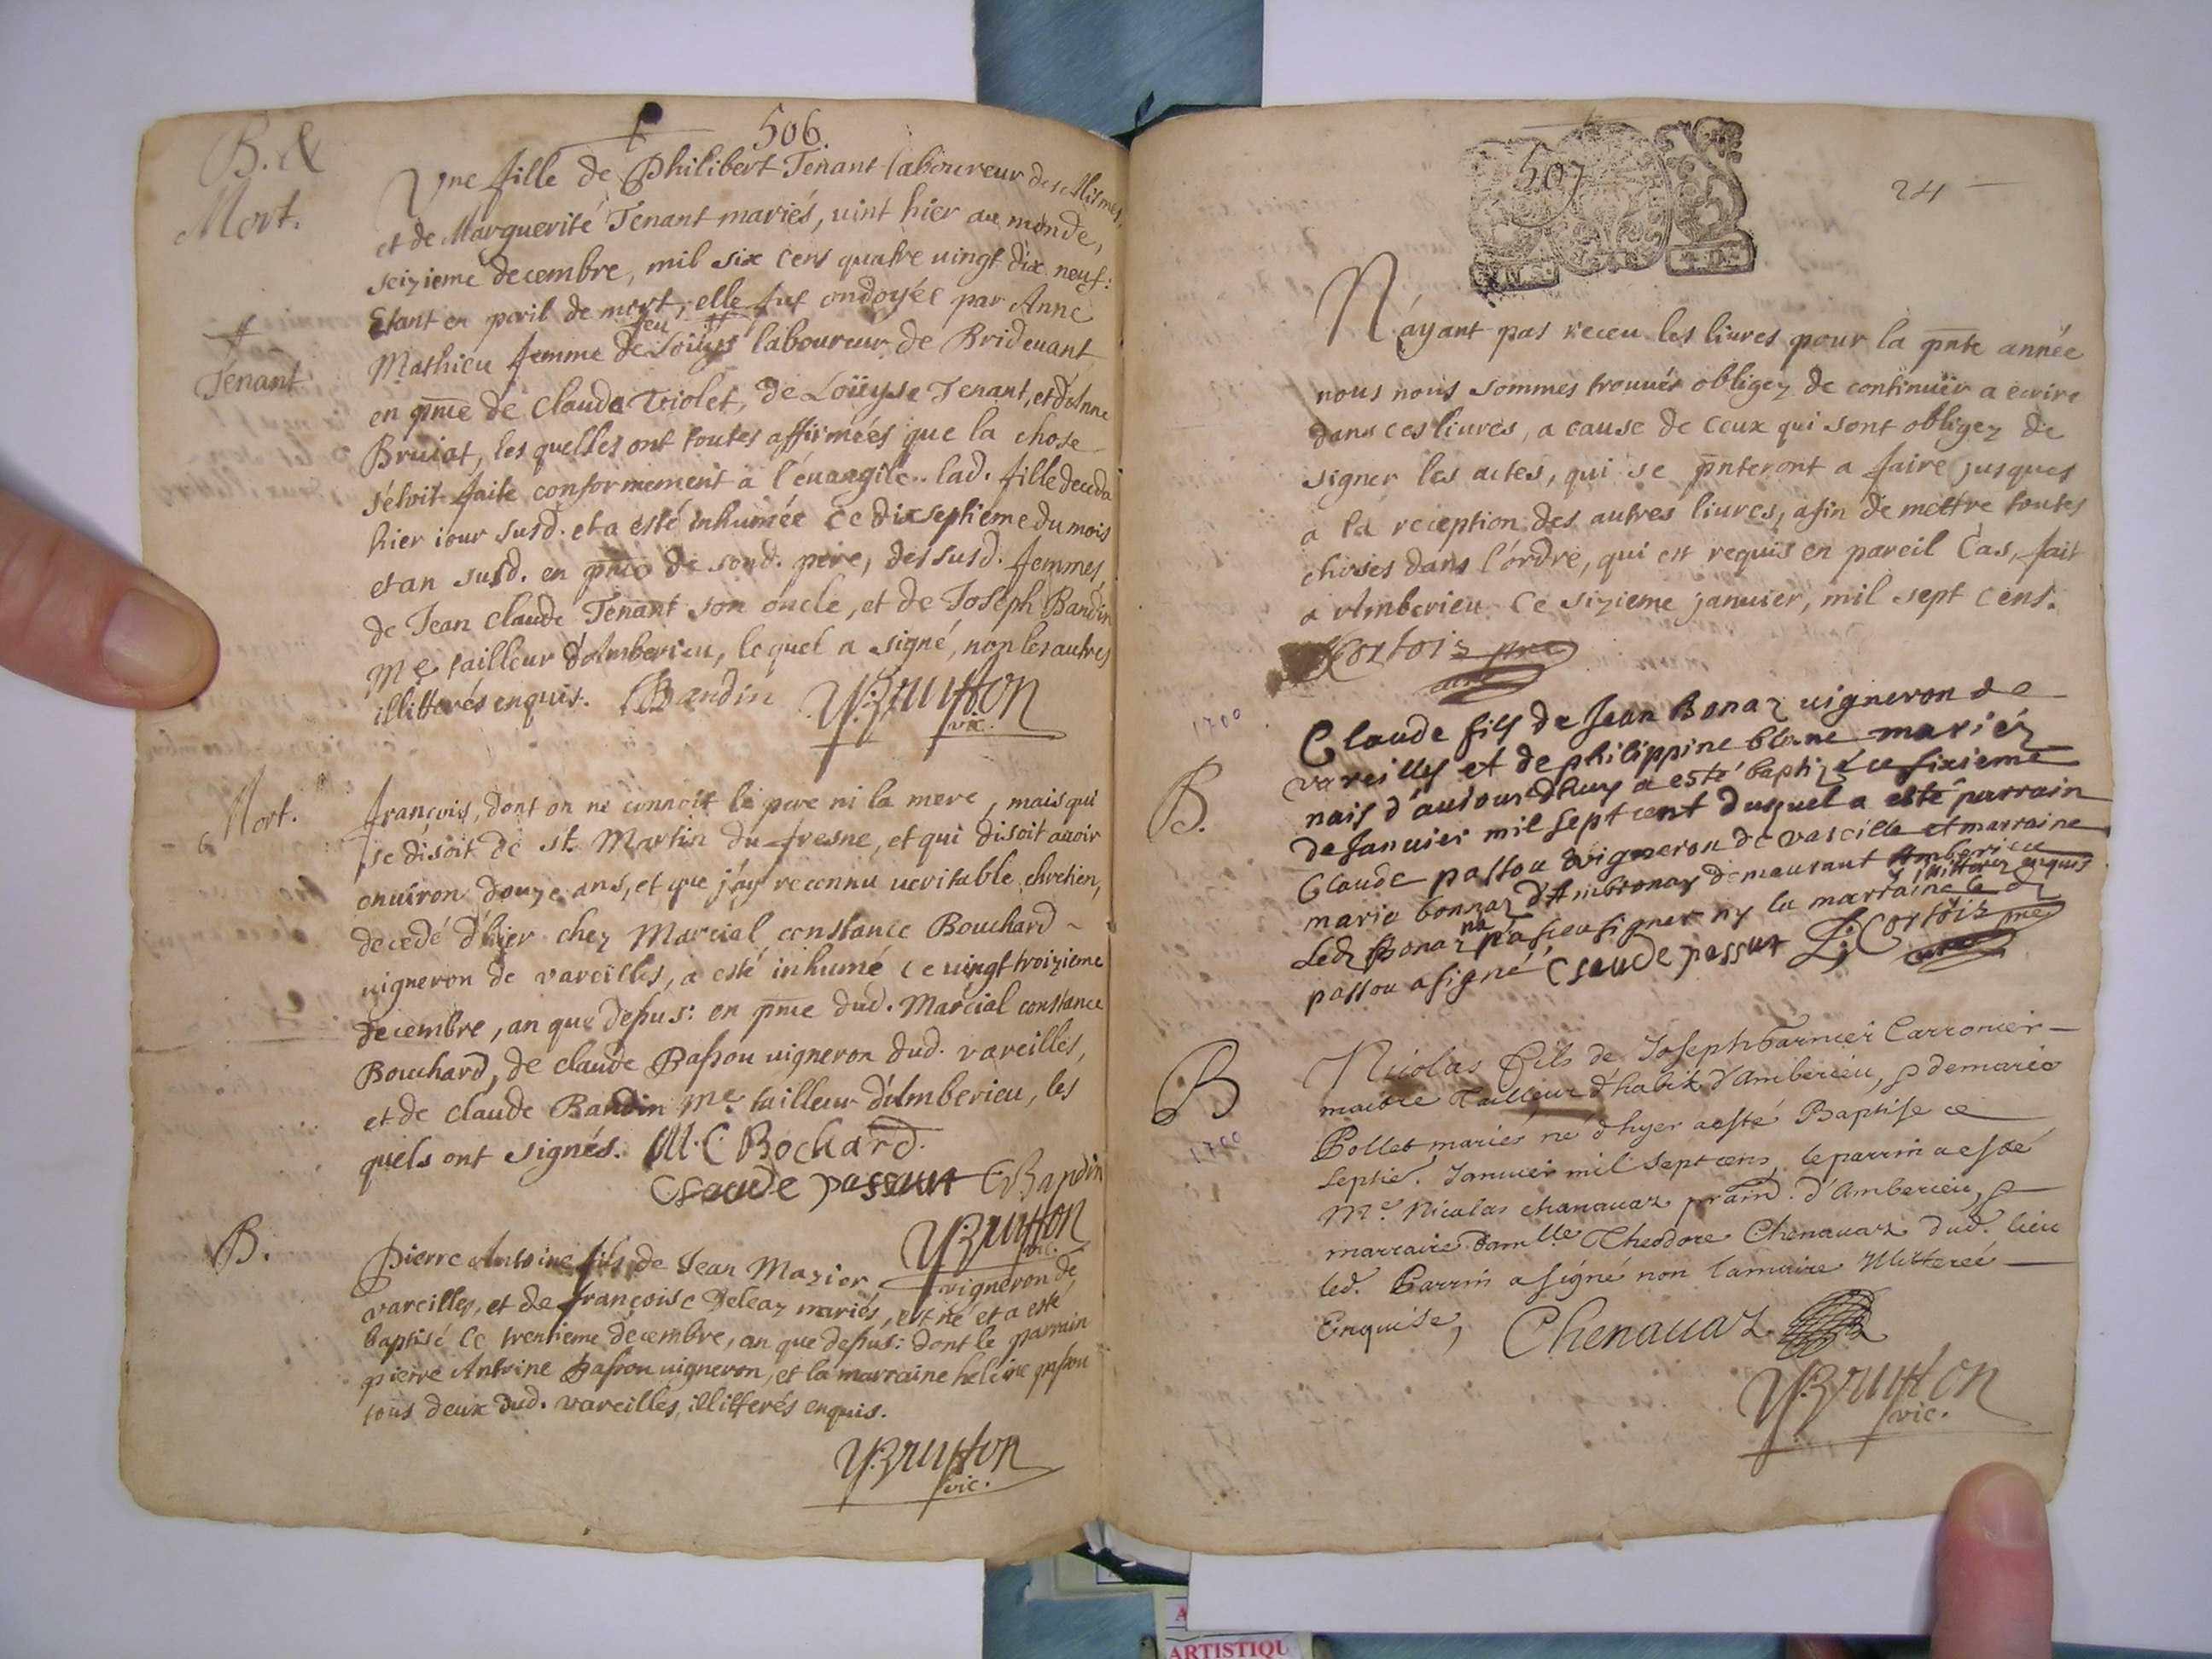 506
B. &
Mort.
Une fille de Philibert Tenant laboureur des Allimes,
et de Marguerite Tenant mariés, vint hier au monde,
seizieme decembre, mil six cens quatre vingt dix neuf:
Etant en peril de mort, elle fut ondoyée par Anne
feu
Mathieu femme de Loüys laboureur de Bridevant
Tenant
en pnce de Claude Violet, de Loüyse Tenant, et d'Anne
Bruiat, les quelles ont toutes affirmées que la chose
s'etoit faite conformement a l'évangile.. lad. fille deceda
hier iour susd. et a esté inhumée ce dix septieme du mois
et an susd. en pnce de sond. pere, des susd. femmes,
de Jean Claude Tenant son oncle, et de Joseph Bandin
Me tailleur d'Amberieu, lequel a signé, non les autres
illitterés enquis. Bandin Bruysson
vic.
Mort.
françois, dont on ne connoit le pere ni la mere, mais qui
se disoit de st. Martin du fresne, et qui disoit avoir
environ douze ans, et que j'ay reconnu veritable chretien,
decedé d'hier chez Marcial constance Bouchard
vigneron de vareilles, a esté inhumé ce vingt troizieme
decembre, an que dessus: en pnce dud. Marcial constance
Bouchard, de claude Passou vigneron dud. vareilles,
et de claude Bandin Me tailleur d'Amberieu, les
quels ont signés. M. C. Bochard.
Claude passut CBandin
Bruysson
vic.
B.
Pierre Antoine fils de Jean Mazier vigneron de
vareilles, et de françoise Deleaz mariés, est né et a esté
baptisé le trentieme decembre, an que dessus: dont le parrain
pierre Antoine Passou vigneron, et la marraine helene passou
tous deux dud. vareilles, illitterés enquis.
Bruysson
vic.
507
24
N'ayant pas receu les livres pour la pnte année
nous nous sommes trouvés obligez de continüer a ecrire
dans ces livres, a cause de ceux qui sont obligez de
signer les actes, qui se pnteront a faire jusques
a la reception des autres livres, afin de mettre toutes
choses dans l'ordre, qui est requis en pareil cas, fait
a Amberieu ce sizieme janvier, mil sept cens.
Cortois pre
curé
1700
B.
Claude fils de Jean Bonaz vigneron de
vareilles et de philippine blanc mariéz
nais d'aujourdhuy a esté baptizé ce sixieme
de Janvier mil sept cent duquel a esté parrain
Claude passou vigneron de vareille et marraine
marie bonnaz d'Ambronay demeurant Amberieu
illitterez enquis
Ledz Bonaz n'a sceu signer ny la marraine le dz
passou a signé Claude passut Cortois pre
curé
B
1700
Nicolas fils de Joseph Garnier Carronier
maitre Tailleur d'habit d'Amberieu, & de marie
Pollet mariés né d'hyer a esté Baptise ce
septie. Janvier mil sept cens, le parrin a esté
Me. Nicolas chanavaz prain. d'Amberieu, &
marraine Damlle Theodore Chenavaz dud. lieu
led. Parrin a signé non lamaire illitereé
Enquise, Chenavaz
Bruysson
vic.
ARTISTIQU